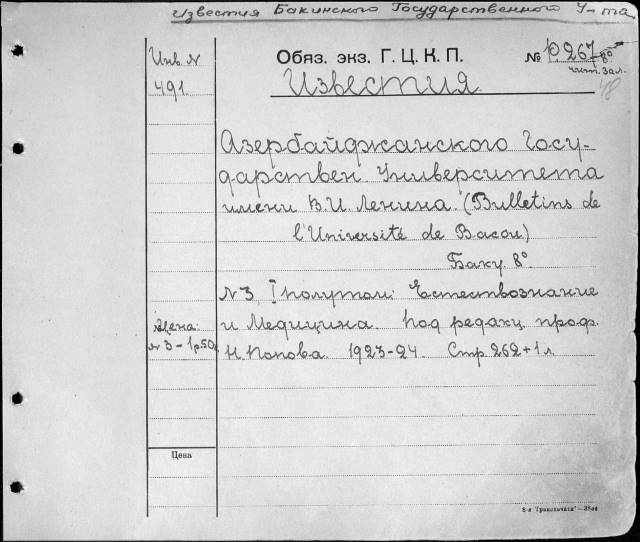 Известия Бакинского Государственного У-та
Инв. №
491
Обяз. экз. Г. Ц. К. П.
№ 10.267
8°
чит. зал.
Известия
Азербайджанского Госу-
дарствен Университета
имени В.И. Ленина. (Bulletins de
l'Université de Bacou)
Баку. 8°
№3. I полутом: Естествознание
и Медицина. под редакц. проф.
Н. Попова. 1923-24. Стр. 262+1 л.
Цена:
№ 3 - 1р50к
Цена